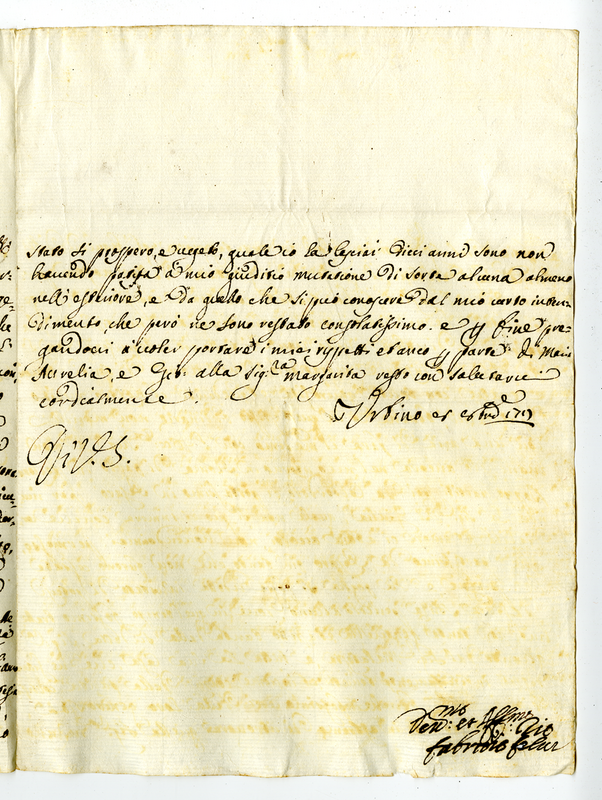 stato si prospero, e vegeto, quale io la lasciai dieci anni sono non
havendo patita à mio giuditio mutatione di sorta alcuna almeno
nell'esteriore, e da quello che si può conoscere dal mio curto inten-
dimento, che però ne sono restato consolatissimo. e p fine pre-
gandoci à voler portare i miei rispetti et anco p parte di Maria
Aurelia, e Ger: alla Sig:ra Margarita resto con salutarvi
cordialmente.
Urbino
Di V. S.
et Aff:mo Zio
Fabritio